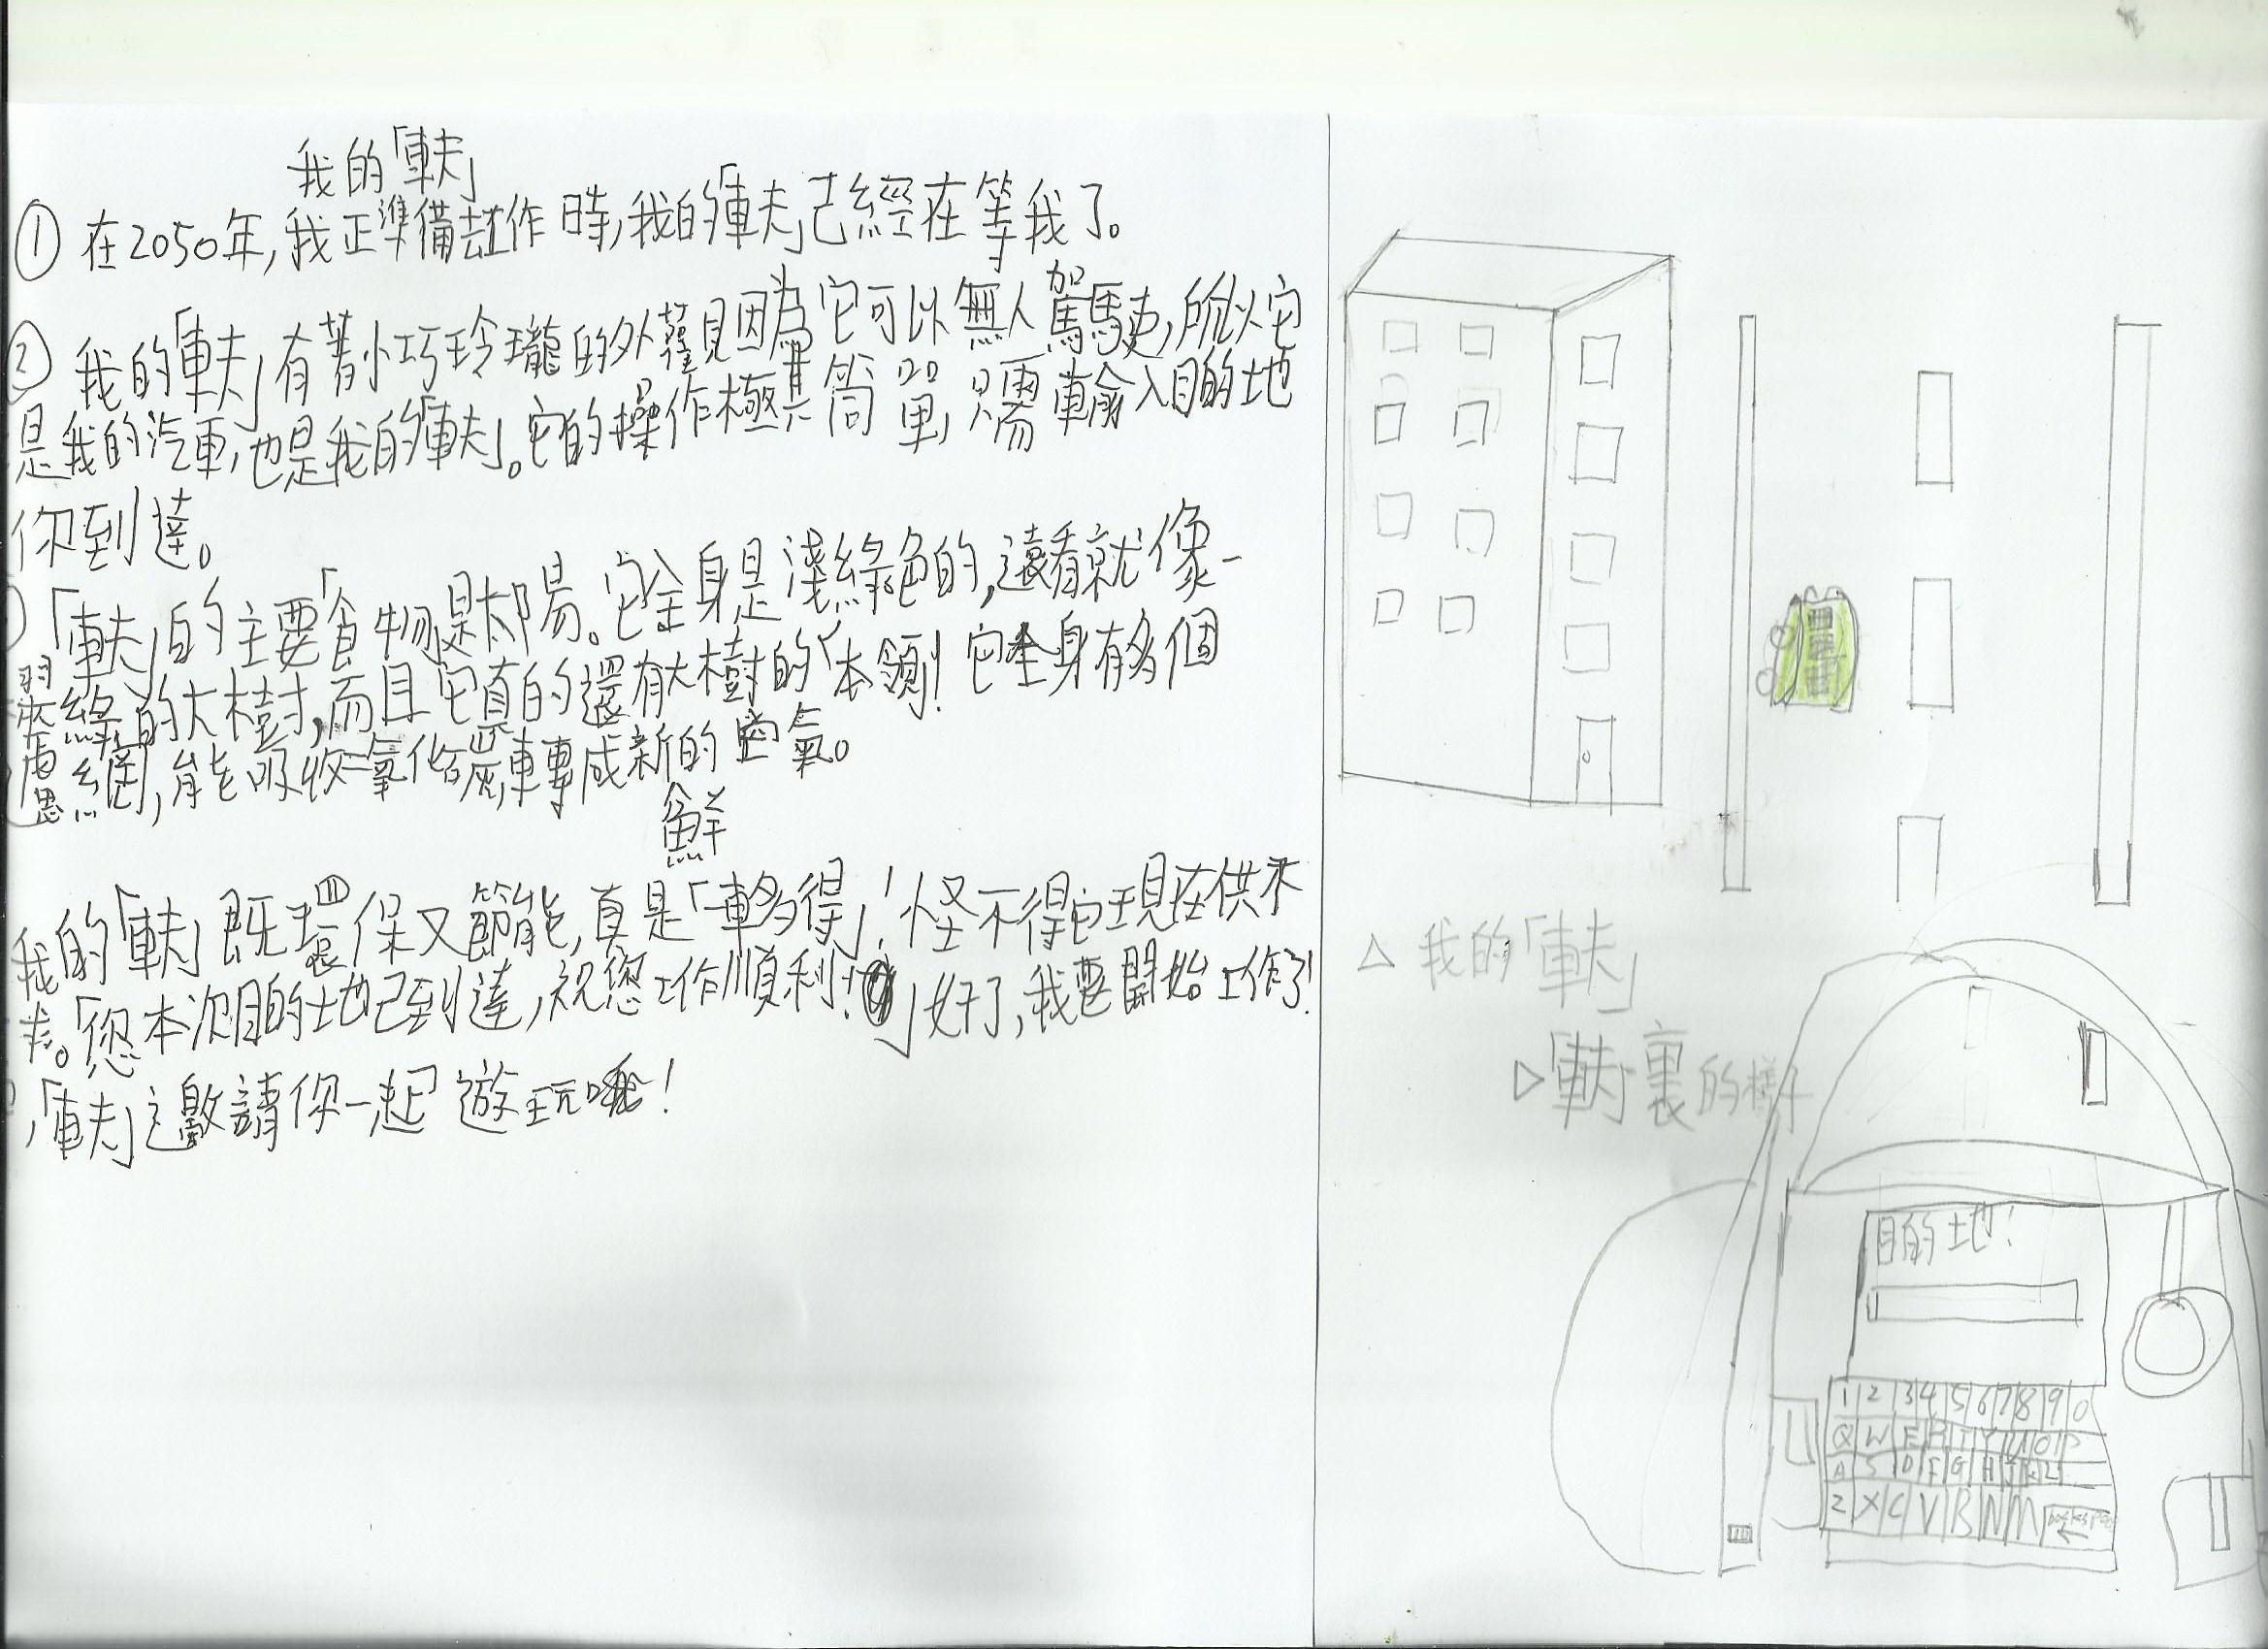 我的「車夫」
① 在2050年,我正準備去工作時,我的「車夫」已經在等我了。
② 我的「車夫」有著小巧玲瓏的外觀因為它可以無人駕駛,所以它
是我的汽車,也是我的「車夫」。它的操作極其簡單,只需輸入目的地
你到達。
「車夫」的主要「食物」是太陽。它全身是淺綠色的,遠看就像一
翠綠的大樹,而且它真的還有大樹的「本領」!它全身有多個
濾網,能吸收二氧化碳,轉成新鮮的空氣。
我的「車夫」既環保又節能,真是「車多得」!怪不得它現在供不
求。「您本次目的地已到達,祝您工作順利!」好了,我要開始工作了!
,「車夫」邀請你一起遊玩哦!
△ 我的「車夫」
▷「車夫」裏的樣子
目的地:
1 2 3 4 5 6 7 8 9 0
Q W E R T Y U O P
A S D F G H J K L
Z X C V B N M backspace ←